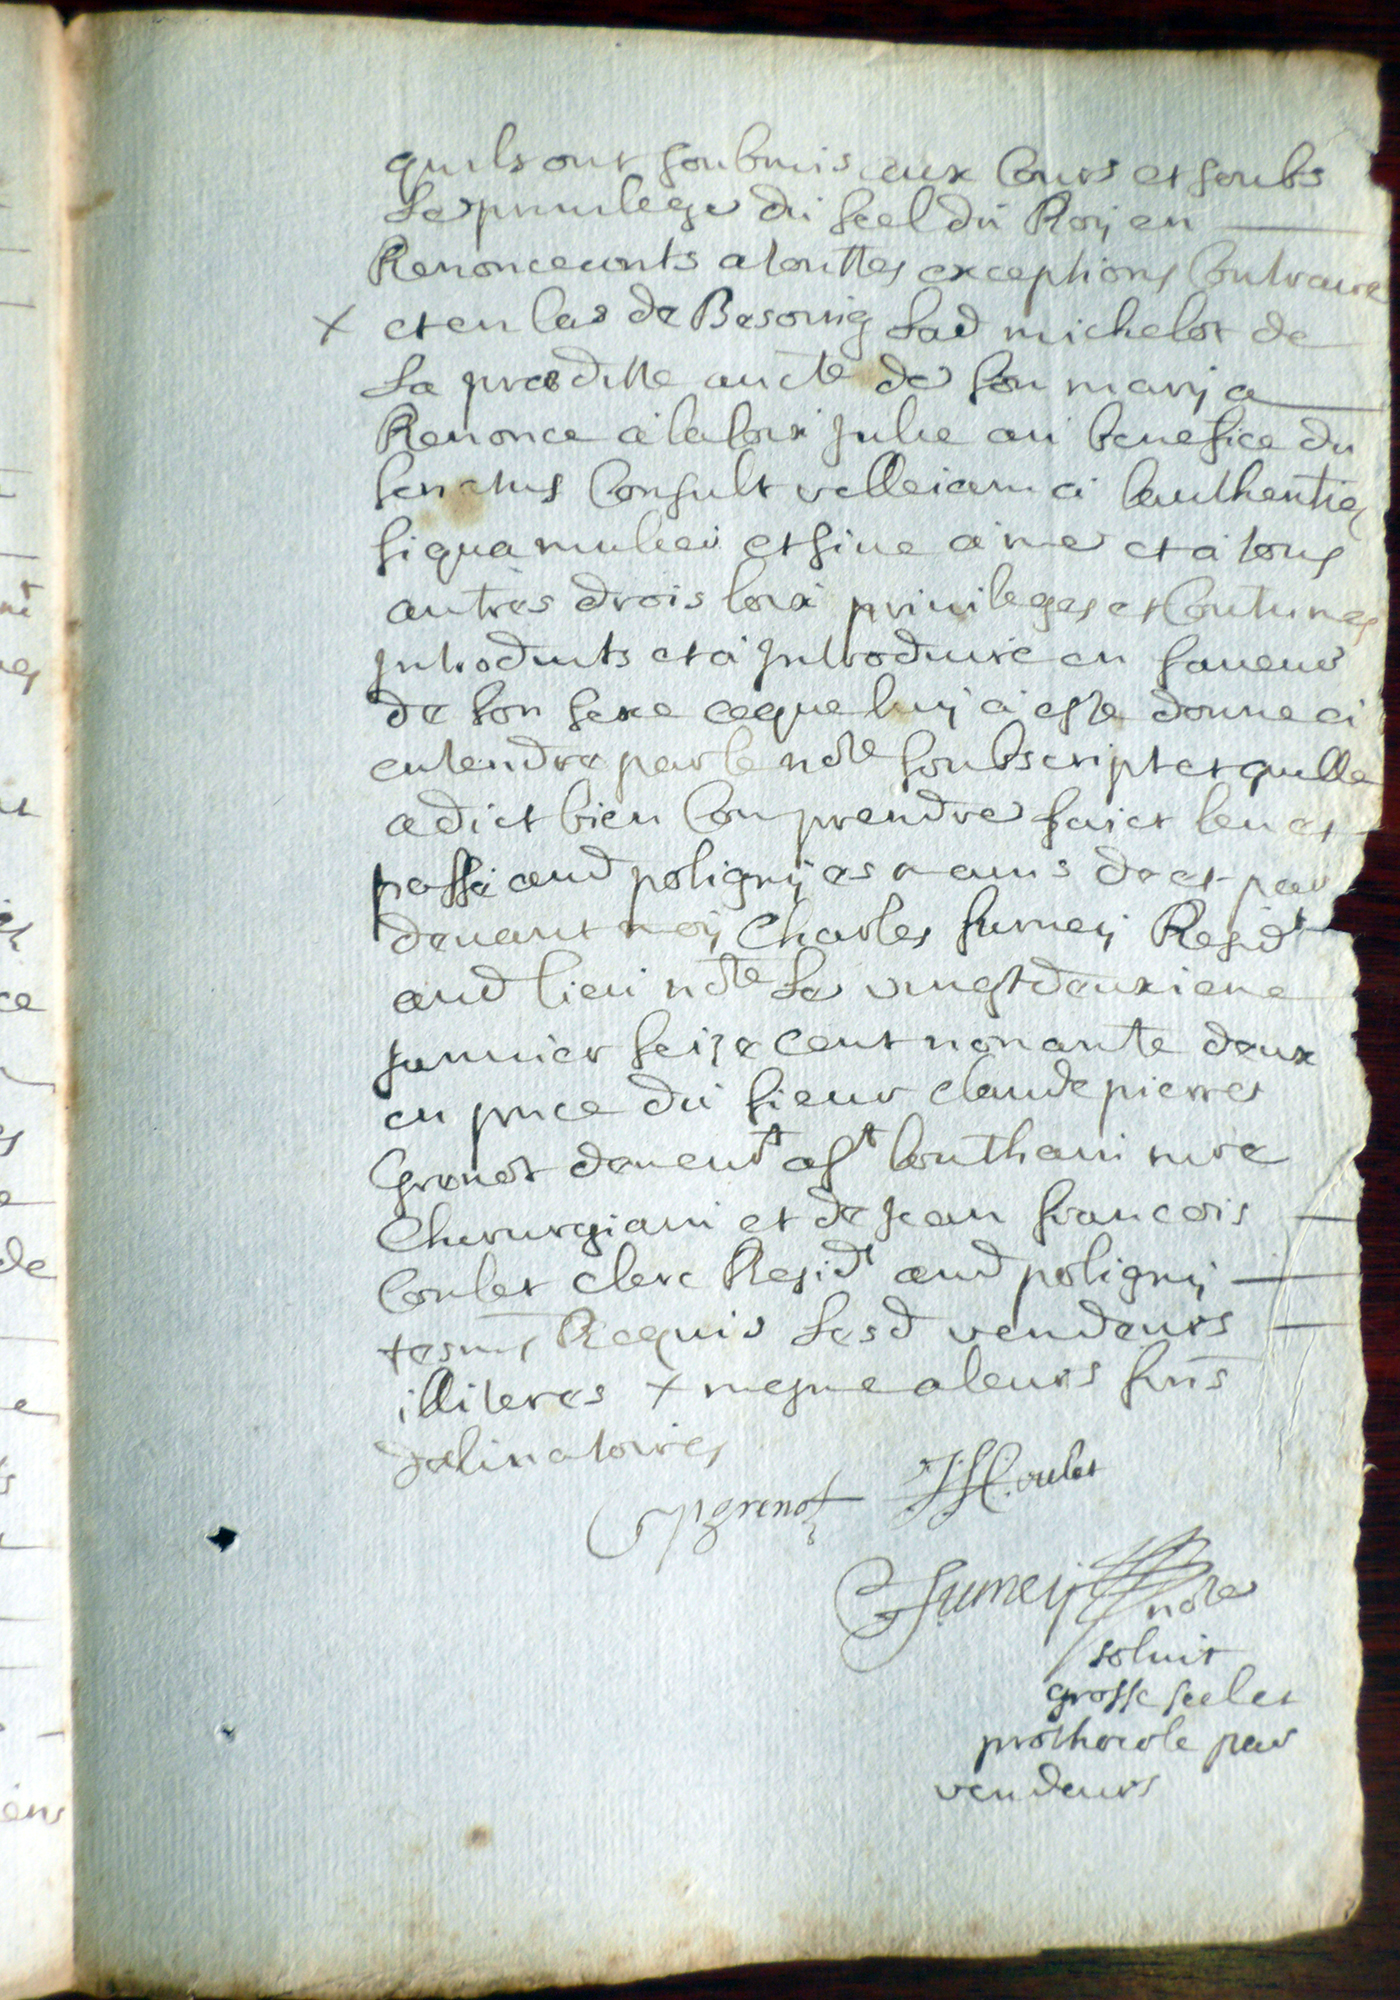 quils ont soubmis aux Cours et soubs
Le priuilege du scel du Roy en
Renonceants a touttes exceptions Contraire
X et en Cas de Besoing Lad michelot de
La preditte aucte de son mary a
Renonce a la loix Julie au benefice du
senatus Consult velleiam a lauthentiq
si qua mulier et sine a me et a tous
autres drois loix priuileges et Coutumes
Introduits et a Introduire en faueur
de son sexe ce que luy a este donne a
entendre par le nore soubscript et quelle
a dict bien Comprendre faict leu et
passé aud poligny es mains de et par
deuant moy Charles Jurney Residt
aud lieu nore Le vingt deuxieme
Januier seize cent nonante deux
en pnce du sieur claude pierre
Grenot demeurt a st Louthain mre
Chirurgiain et de Jean francois
Coulet clerc Residt aud poligny
tesms Requis Lesd vendeurs
illiteres X mesme a leurs fins
declinatoires
Cpgrenot JFCoulet
CJurney nore
soluit
grosse scel et
prothocole par
vendeurs